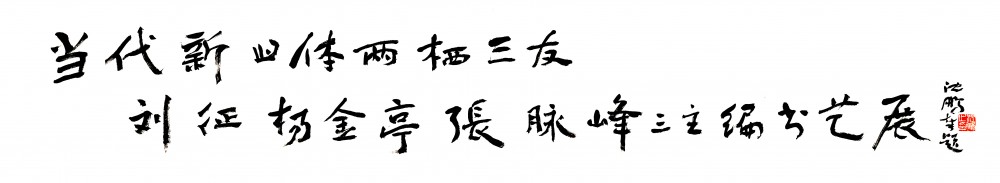 当代新旧体两栖三友
刘征杨金亭張脉峰三主编书艺展
沈鹏題